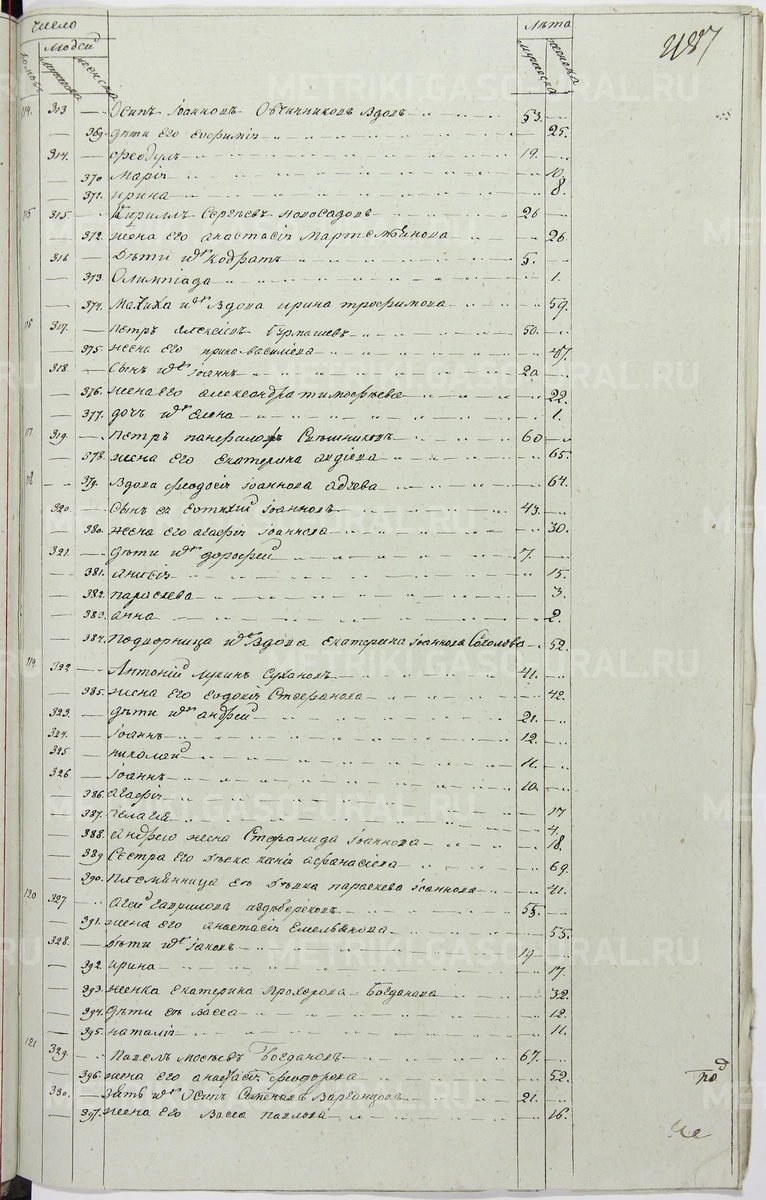 Число
Людей
домовъ мужеска женска
Лѣта
мужеска женска
487
114. 313 — Осипъ Іоанновъ Овчинниковъ Вдовъ 53.
369. дѣти его Евфимія 25.
314. — Феодулъ 19.
370 Марія 10.
371. Ирина 8.
115 315. Кириллъ Сергѣевъ Новосадовъ 26
372. жена его Анастасія Мартемьянова 26
316 — Дѣти их Кодратъ 5.
373 Олимпіада 1.
374. Мачиха их Вдова Ирина Трофимова 59.
116 317. — Петръ Алексіевъ 50.
375. жена его Ирина Василіева 47.
318. — Сынъ их Іоаннъ 20
376. жена его Александра Тимофѣева 22.
377. дочь их Елена 1.
117 319. — Петръ Панфиловъ 60
378. жена его Екатерина Авдіева 65.
118 379. Вдова Феодосія Іоаннова 64.
320. — Сынъ ея Евтихій Іоанновъ 43.
380. жена его Агафія Іоаннова 30.
321. — дѣти их Дорофей 7.
381. 15.
382. Параскева 3.
383. Анна 2.
384. Подворница их Вдова Екатерина Іоаннова Соколова 52.
119 322 — Антоній Лукинъ Сухановъ 41.
385. жена его Евдокія Стефанова 42.
323. — дѣти их Андрей 21.
324. — Іоаннъ 12.
325 — Николай 11.
326 — Іоаннъ 10.
386. Агафія 17
387. Пелагія 4.
388. Андрею жена Степанида Іоаннова 18.
389 Сестра его Афанасіева 69.
390. Племянница его Дѣвка Параскева Іоаннова 41.
120 327 — Гавриловъ 55.
391. жена его Анастасія Емельянова 55.
328. — Дѣти их Іаковъ 19
392. Ирина 17
393. Женка Екатерина Прохорова Богданова 32.
394. Дѣти ея Васса 12.
395. Наталія 11.
121 329. Павелъ Мосѣевъ Богдановъ 67.
396. жена его Анастасія Феодорова 52.
330. — Зять их Осипъ Семеновъ 21.
397. жена его Васса Павлова 16.
под
METRIKI.GASOSURAL.RU